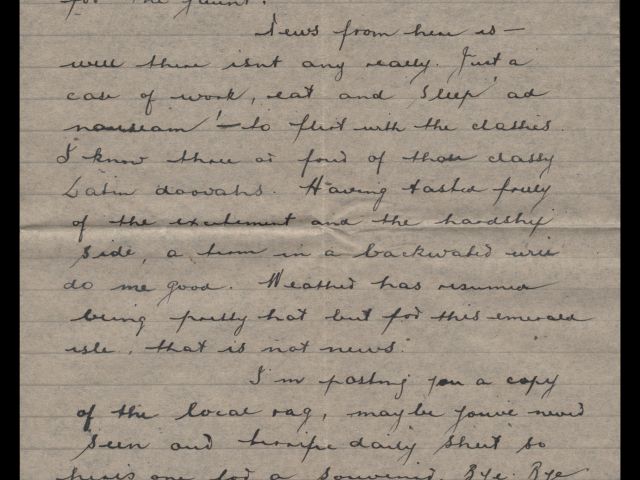 for the jaunt.
News from here is —
well there isnt any really. Just a
case of work, eat and sleep 'ad
nauseam' — to flirt with the classies.
I know three or four of those classy
Latin doovahs. Having tasted freely
of the excitement and the hardship
side, a term in a backwater will
do me good. Weather has resumed
being pretty hot but for this emerald
isle, that is not news.
I'm posting you a copy
of the local rag, maybe youve never
seen and terrific daily sheet so
heres one for a souvenir. Bye Bye